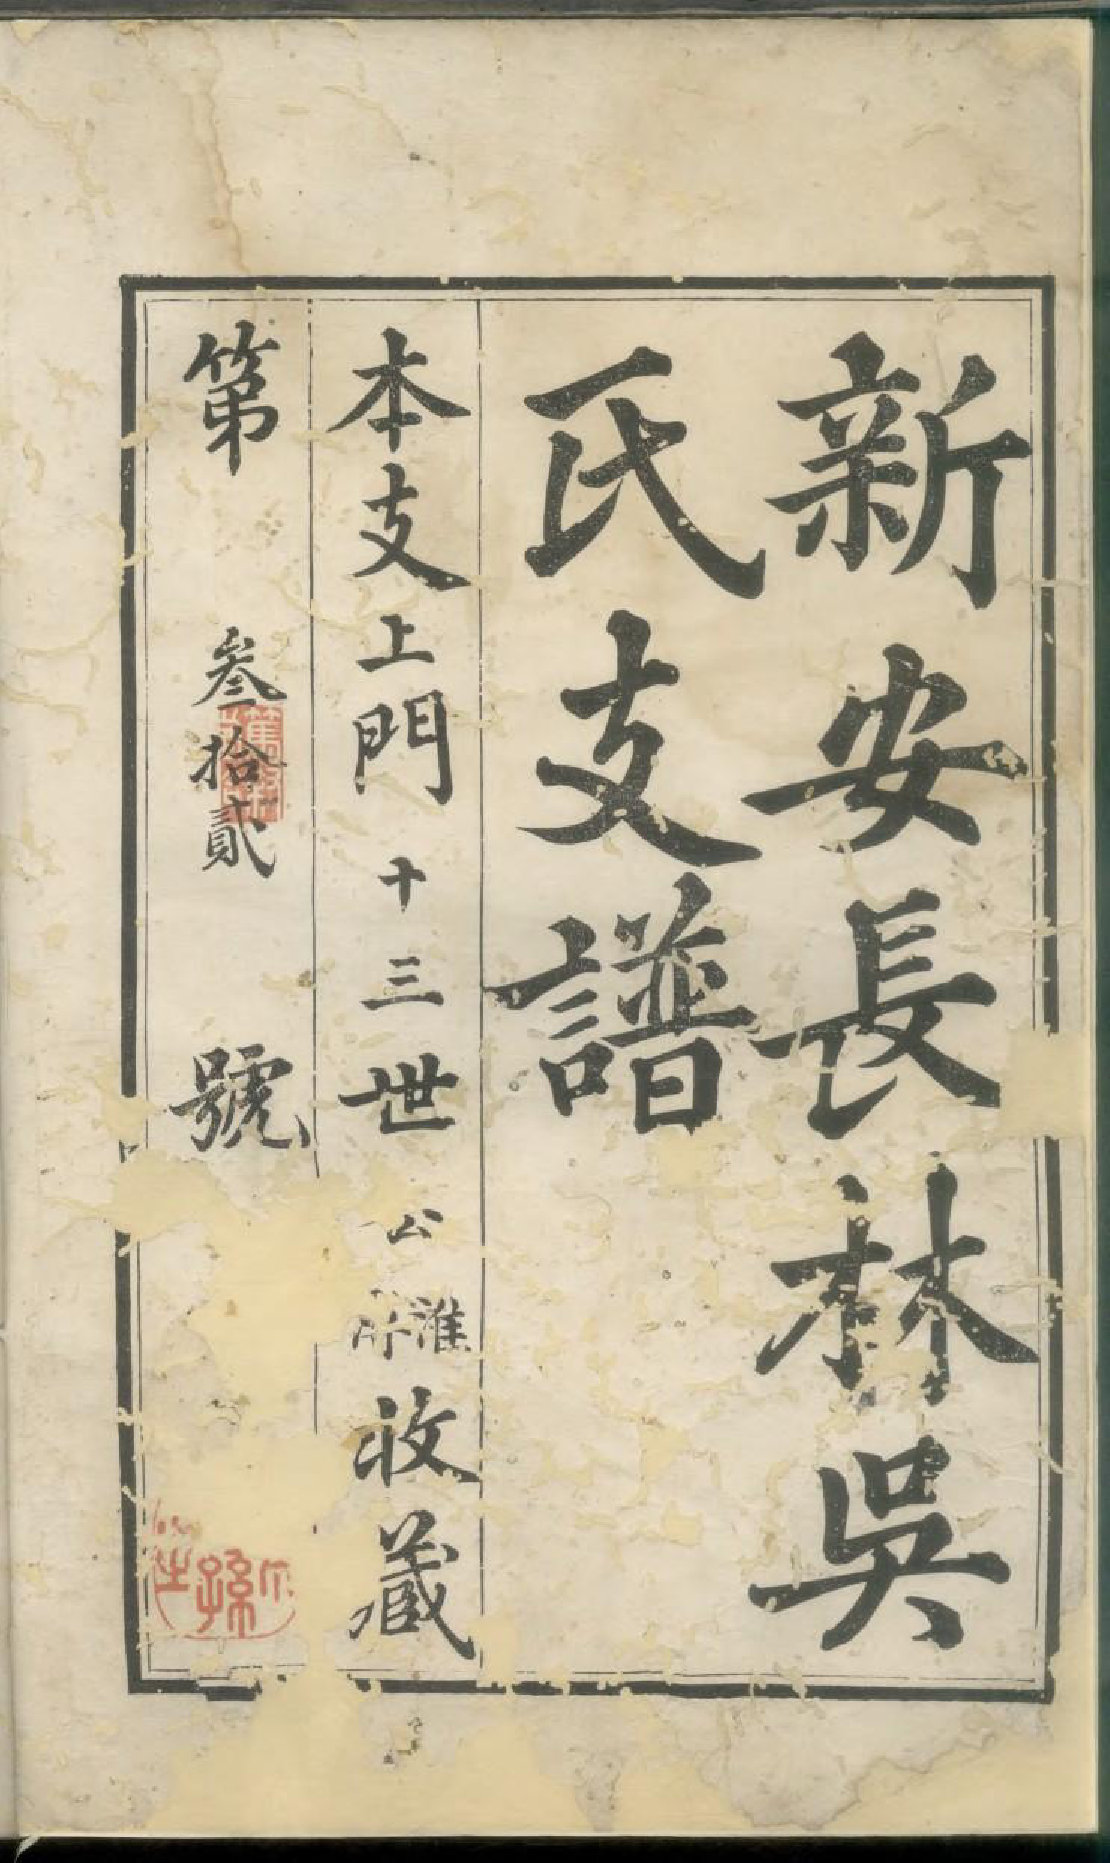 新安長林吳
氏支譜
本支上門十三世公淮所收藏
第叁拾貳號
孫